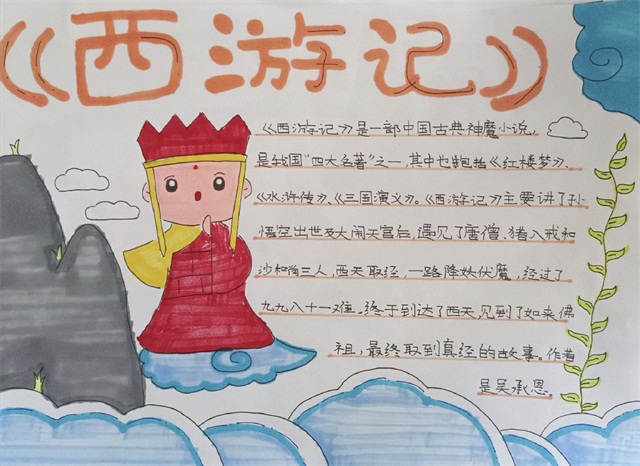 《西游记》
《西游记》是一部中国古典神魔小说,
是我国"四大名著"之一,其中也包括《红楼梦》、
《水浒传》、《三国演义》。《西游记》主要讲了孙
悟空出世及大闹天宫后,遇见了唐僧、猪八戒和
沙和尚三人,西天取经,一路降妖伏魔,经过了
九九八十一难,终于到达了西天,见到了如来佛
祖,最终取到真经的故事。作者
是吴承恩.